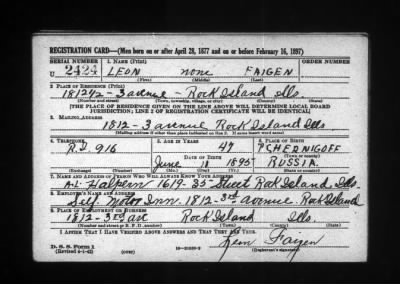 REGISTRATION CARD—(Men born on or after April 28, 1877 and on or before February 16, 1897)
SERIAL NUMBER 1. NAME (Print) ORDER NUMBER
U 2424 LEON none FAIGEN
(First) (Middle) (Last)
2. PLACE OF RESIDENCE (Print)
1812½ - 3 avenue - Rock Island Ills.
(Number and street) (Town, township, village, or city) (County) (State)
[THE PLACE OF RESIDENCE GIVEN ON THE LINE ABOVE WILL DETERMINE LOCAL BOARD
JURISDICTION; LINE 2 OF REGISTRATION CERTIFICATE WILL BE IDENTICAL]
3. MAILING ADDRESS
1812 - 3 avenue Rock Island Ills
[Mailing address if other than place indicated on line 2. If same insert word same]
4. TELEPHONE 5. AGE IN YEARS 6. PLACE OF BIRTH
R.I. 916 47 TCHERNIGOFF
DATE OF BIRTH (Town or county)
June 18 1895 RUSSIA.
(Exchange) (Number) (Mo.) (Day) (Yr.) (State or country)
7. NAME AND ADDRESS OF PERSON WHO WILL ALWAYS KNOW YOUR ADDRESS
A.L. Halpern 1619-35 Street Rock Island, Ills.
8. EMPLOYER'S NAME AND ADDRESS
Self Motor Inn. 1812-3rd avenue. Rock Island
9. PLACE OF EMPLOYMENT OR BUSINESS
1812-3rd ave Rock Island Ills.
(Number and street or R. F. D. number) (Town) (County) (State)
I AFFIRM THAT I HAVE VERIFIED ABOVE ANSWERS AND THAT THEY ARE TRUE.
D. S. S. Form 1 Leon Faigen
(Revised 4-1-42) (over) (Registrant's signature)